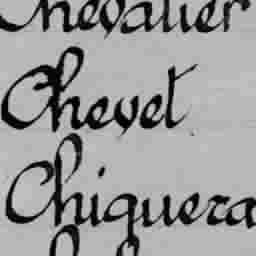 Chevalier
Chevet
Chiquera